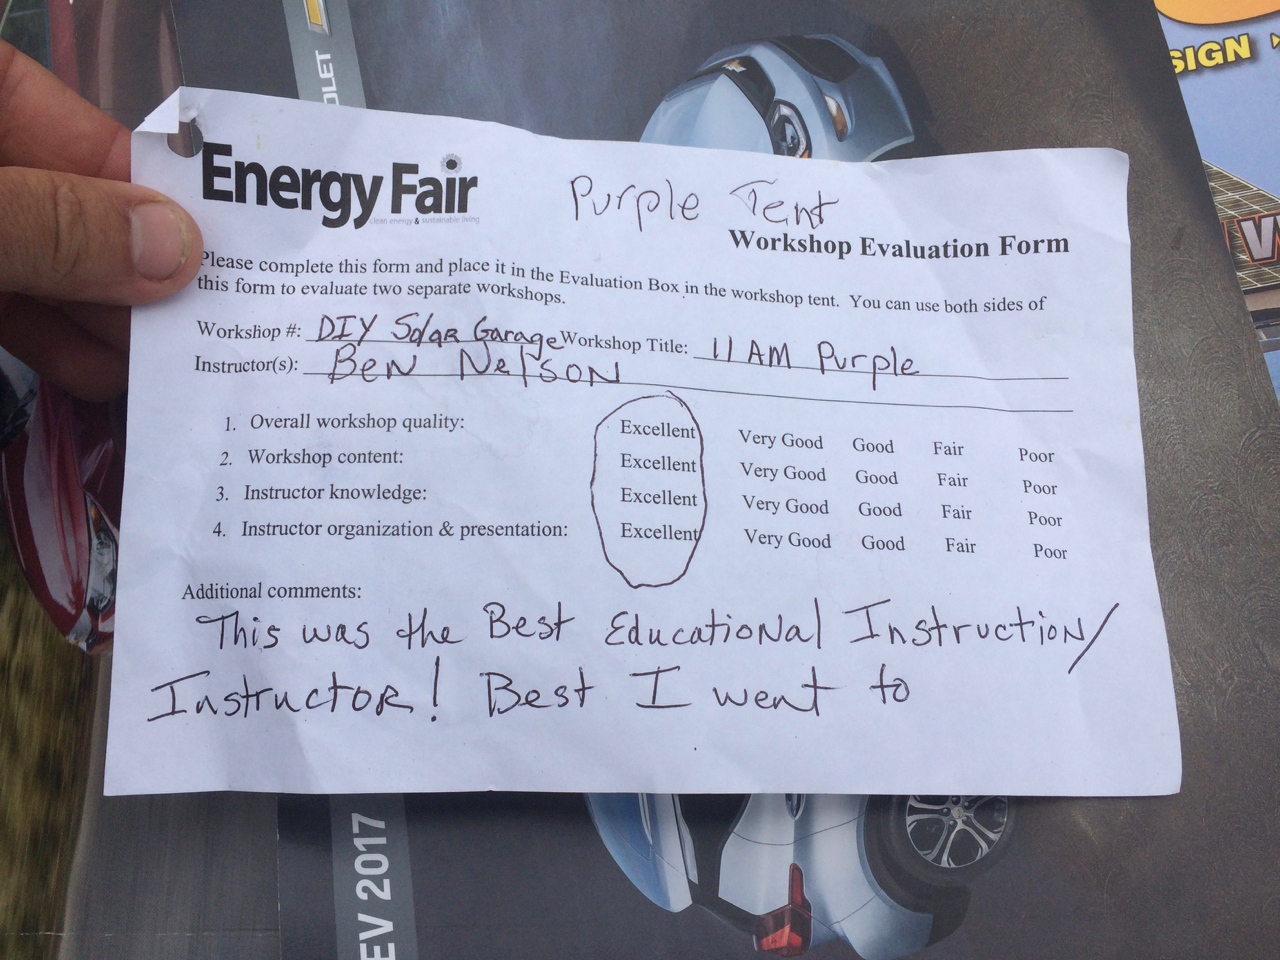 OLET
SIGN
Energy Fair
clean energy & sustainable living
Purple Tent
Workshop Evaluation Form
Please complete this form and place it in the Evaluation Box in the workshop tent. You can use both sides of
this form to evaluate two separate workshops.
Workshop #: DIY Solar Garage Workshop Title: 11 AM Purple
Instructor(s): Ben Nelson
1. Overall workshop quality: Excellent Very Good Good Fair Poor
2. Workshop content: Excellent Very Good Good Fair Poor
3. Instructor knowledge: Excellent Very Good Good Fair Poor
4. Instructor organization & presentation: Excellent Very Good Good Fair Poor
Additional comments:
This was the Best Educational Instruction/
Instructor! Best I went to
EV 2017